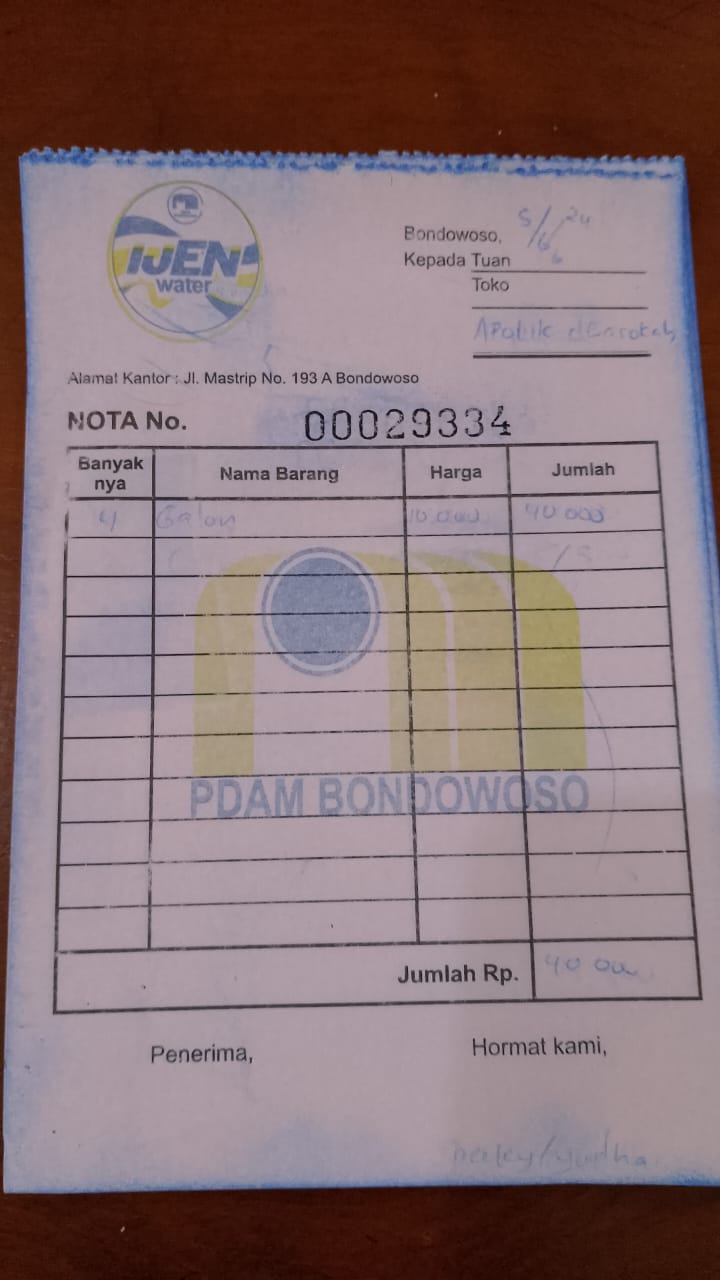 IJEN
water
Bondowoso, 5/6 24
Kepada Tuan
Toko
Apotik
Alamat Kantor : Jl. Mastrip No. 193 A Bondowoso
NOTA No. 00029334
Banyak nya Nama Barang Harga Jumlah
4 Galon 10.000 40 000
PDAM BONDOWOSO
Jumlah Rp. 40 000
Penerima, Hormat kami,